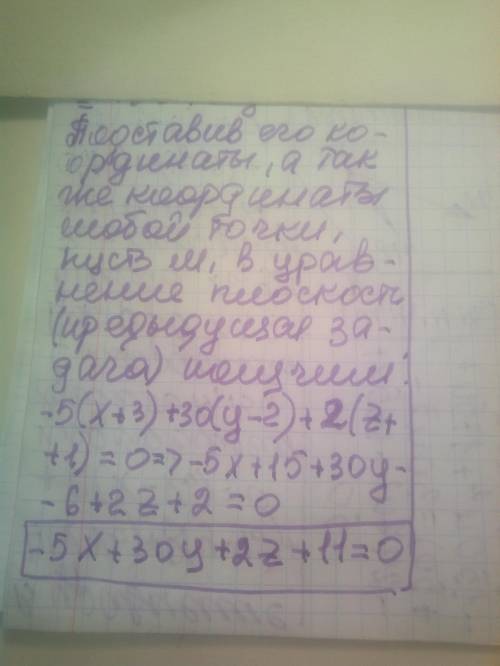 Подставив его ко-
ординаты, а так
же координаты
любой точки,
пусть М, в урав-
нение плоскость
(предыдущая за-
дача) получим:
-5(x+3)+30(y-2)+2(z+
+1)=0=>-5x+15+30y-
-6+2z+2=0
-5x+30y+2z+11=0